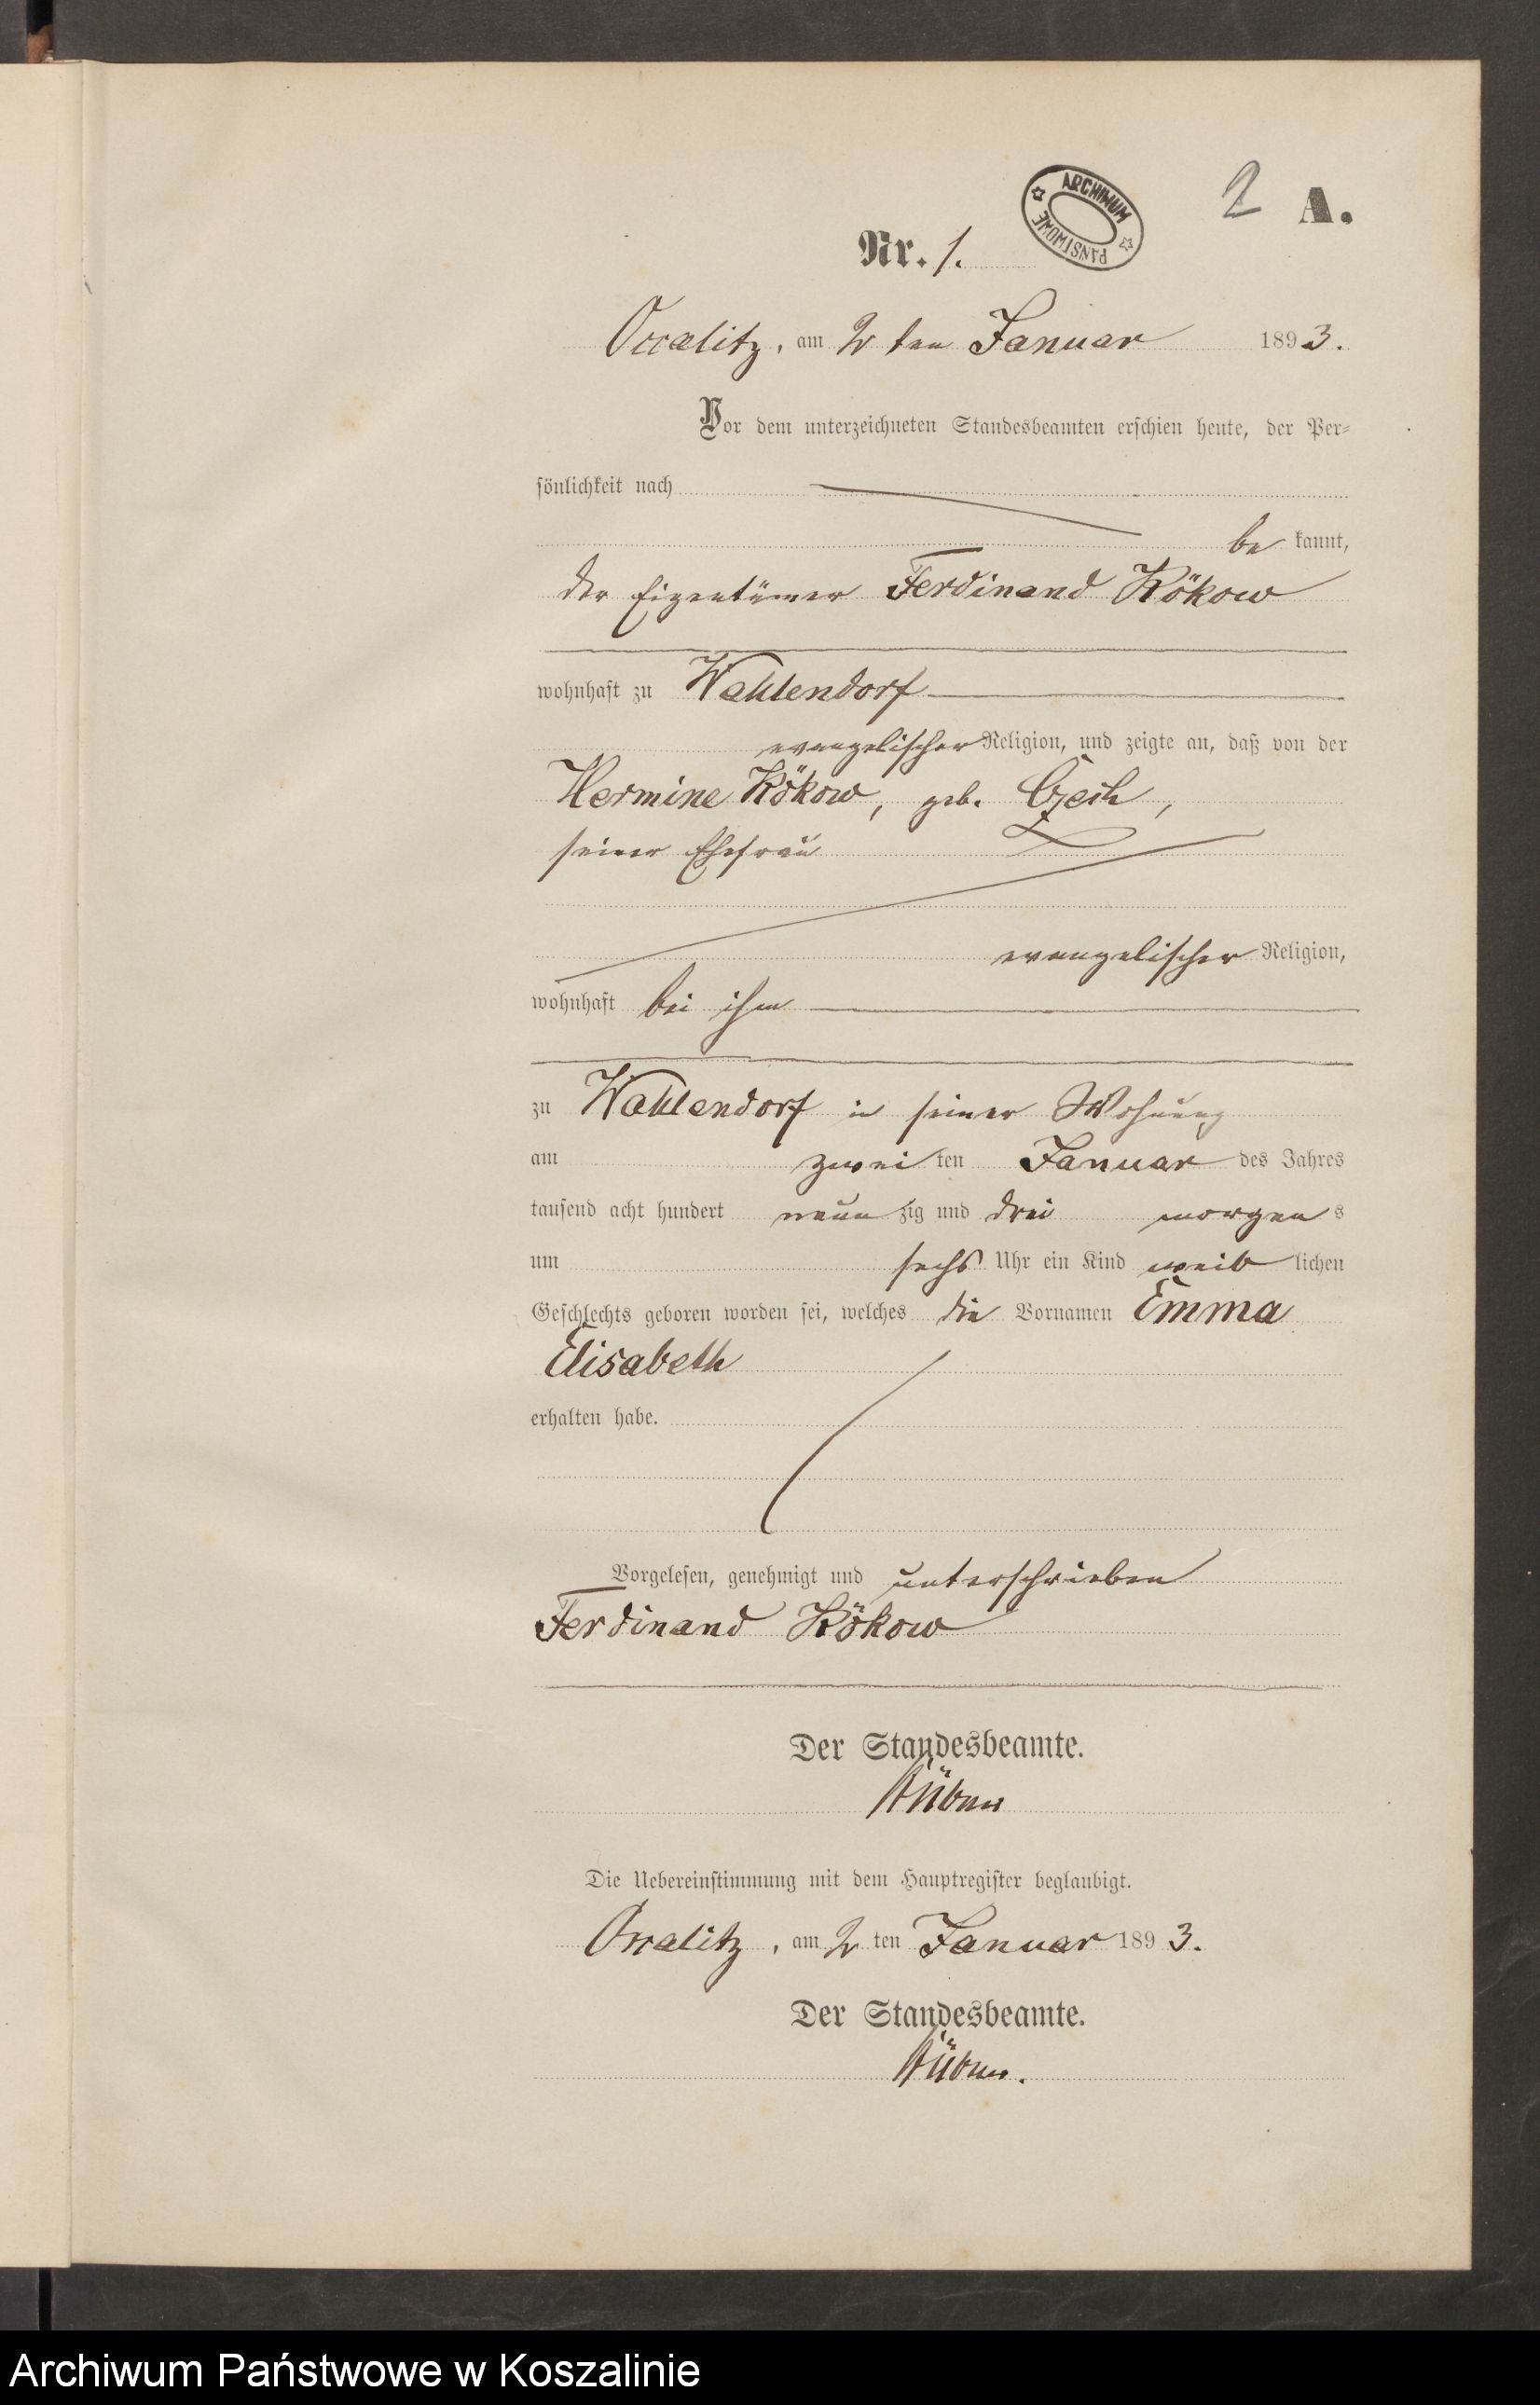 2 A.
ARCHIWUM PAŃSTWOWE
Nr. 1.
Occalitz, am 2 ten Januar 1893.
Vor dem unterzeichneten Standesbeamten erschien heute, der Per-
sönlichkeit nach
be kannt,
der Eigentümer Ferdinand Kökow
wohnhaft zu Wahlendorf
evangelischer Religion, und zeigte an, daß von der
Hermine Kökow, geb. Czech,
seiner Ehefrau
evangelischer Religion,
wohnhaft bei ihm
zu Wahlendorf in seiner Wohnung
am zwei ten Januar des Jahres
tausend acht hundert neun zig und drei morgen s
um sechs Uhr ein Kind weib lichen
Geschlechts geboren worden sei, welches die Vornamen Emma
Elisabeth
erhalten habe.
Vorgelesen, genehmigt und unterschrieben
Ferdinand Kökow
Der Standesbeamte.
Die Uebereinstimmung mit dem Hauptregister beglaubigt.
Occalitz, am 2 ten Januar 1893.
Der Standesbeamte.
Archiwum Państwowe w Koszalinie